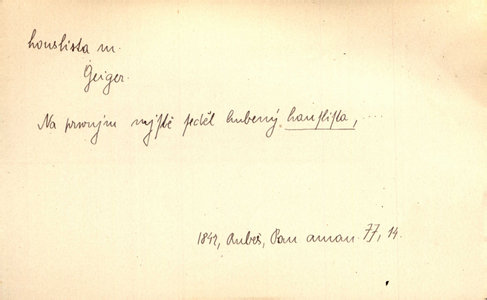 houslista m.
Geiger.
Na prvným mjstě seděl hubený hauslista, ....
1842, Rubeš, Pan aman. 77, 14.